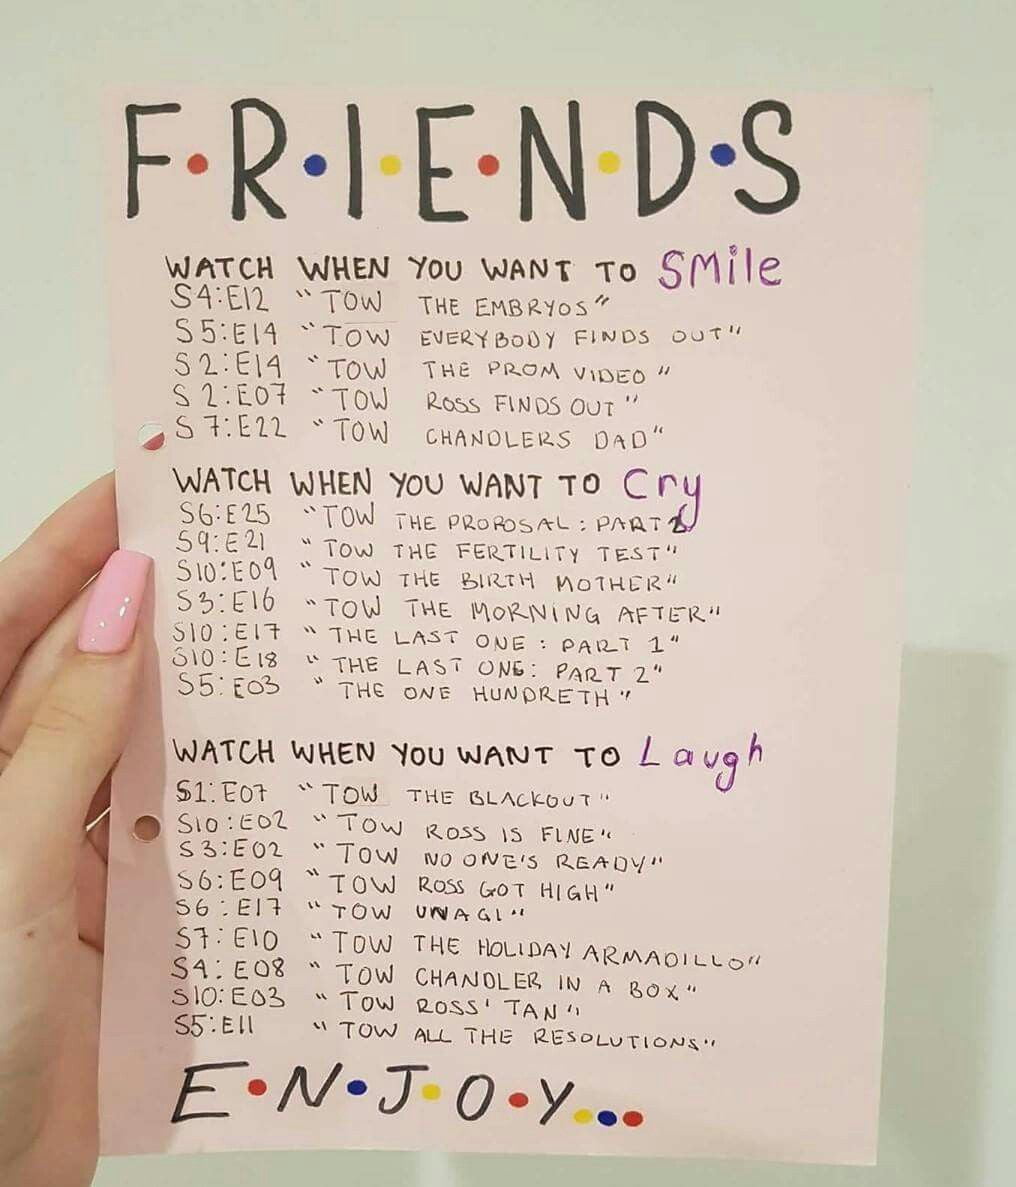 F•R•I•E•N•D•S
WATCH WHEN YOU WANT TO SMile
S4:E12 "TOW THE EMBRYOS"
S5:E14 "TOW EVERYBODY FINDS OUT"
S2:E14 "TOW THE PROM VIDEO"
S2:E07 "TOW ROSS FINDS OUT"
S7:E22 "TOW CHANDLERS DAD"
WATCH WHEN YOU WANT TO Cry
S6:E25 "TOW THE PROPOSAL: PART 2
S9:E21 "TOW THE FERTILITY TEST"
S10:E09 "TOW THE BIRTH MOTHER"
S3:E16 "TOW THE MORNING AFTER"
S10:E17 "THE LAST ONE: PART 1"
S10:E18 "THE LAST ONE: PART 2"
S5:E03 "THE ONE HUNDRETH"
WATCH WHEN YOU WANT TO Laugh
S1:E07 "TOW THE BLACKOUT"
S10:E02 "TOW ROSS IS FINE"
S3:E02 "TOW NO ONE'S READY"
S6:E09 "TOW ROSS GOT HIGH"
S6:E17 "TOW UNAGI"
S7:E10 "TOW THE HOLIDAY ARMADILLO"
S4:E08 "TOW CHANDLER IN A BOX"
S10:E03 "TOW ROSS' TAN"
S5:E11 "TOW ALL THE RESOLUTIONS"
E•N•J•O•Y...